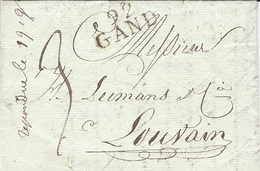 92
GAND
Messieurs
Leemans & Cie
Louvain
3
repondue le 19